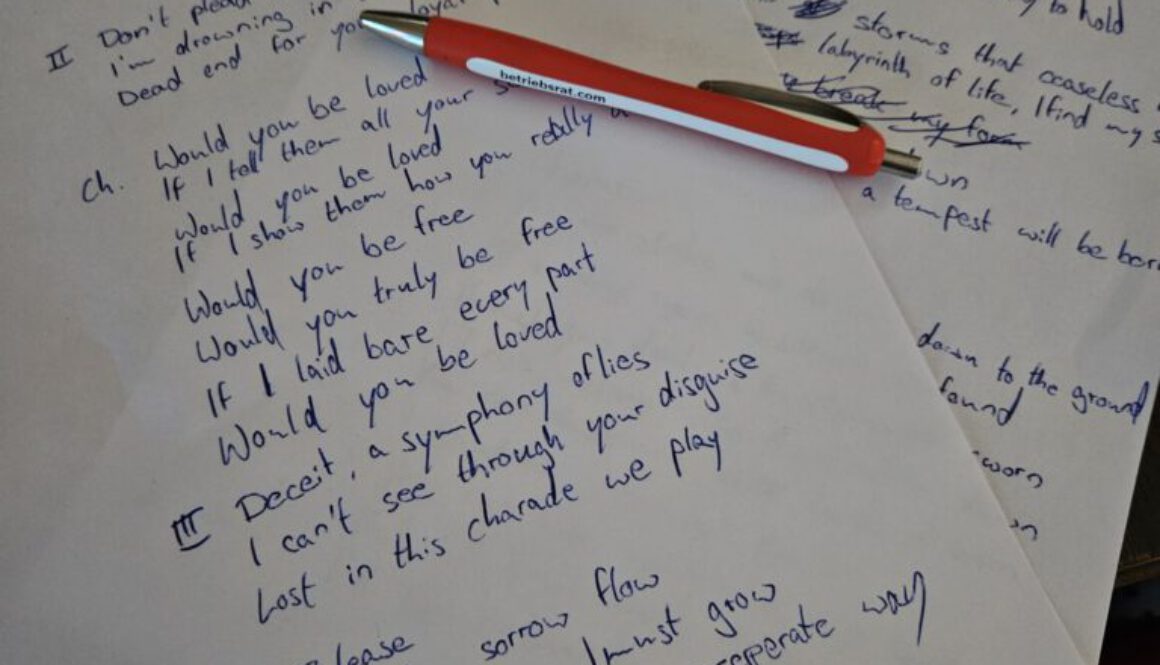 II Don't plead
I'm drowning in
Dead end for you loyal
Ch. Would you be loved
If I tell them all your
Would you be loved
If I show them how you really
Would you be free
Would you truly be free
If I laid bare every part
Would you be loved
III Deceit, a symphony of lies
I can't see through your disguise
Lost in this charade we play
sorrow flow
I must grow
way
betriebsrat.com
to hold
storms that ceaseless
labyrinth of life, I find my s
break my
own
a tempest will be born
down to the ground
found
sworn